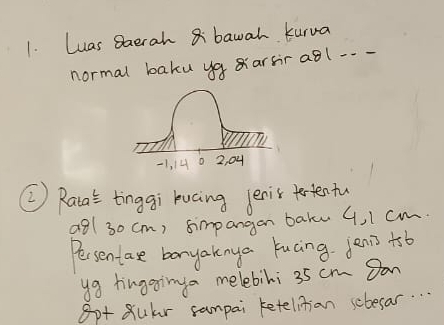 1. Luas daerah di bawah kurva
normal baku yg diarsir adl ...-
-1,14 0 2,04
② Rata² tinggi kucing jenis tertentu
adl 30 cm, simpangan baku 4,1 cm.
Persentase banyaknya kucing jenis tsb
yg tingginya melebihi 35 cm dan
dpt diukur sampai ketelitian sebesar ...